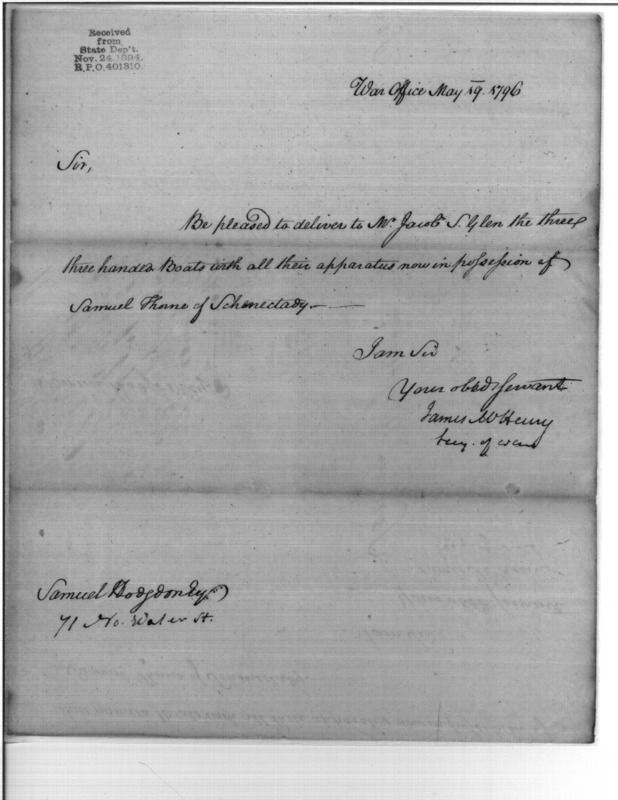 Received
from
State Dep't.
Nov. 24, 1894.
R.P.O. 401310.
War Office May 19. 1796
Sir,
Be pleased to deliver to Mr. Jacob S. Glen the three
three handed Boats with all their apparatus now in possession of
Samuel Thorne of Schenectady
I am Sir
Your obed Servant
James McHenry
Secy. of war
Samuel Hodgdon Esqr
71 No. Water St.